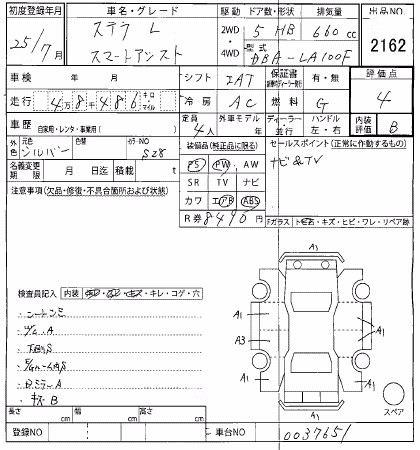 初度登録年月 車名・グレード 駆動 ドア数・形状 排気量 出品NO
25/7月 ステラ L 2WD・4WD 5 HB 660cc 2162
スマートアシスト 型式 DBA-LA100F
車検 年 月 シフト IAT 保証書 有・無 評価点
走行 4万8千486 キロ マイル 冷房 AC 燃料 G 4
車歴 自家用・レンタ・事業用( ) 定員 4人 外車モデル 年 ディーラー 並行 ハンドル 左・右 内装評価 B
外色 元色 シルバー 色替 カラーNO S28 装備品(純正品に限る) セールスポイント(正常に作動するもの)
PS PW AW ナビ&TV
名義変更期限 月 日迄 積載 t SR TV ナビ
注意事項(欠品・修復・不具合箇所および状態) カワ エアB ABS
R券 8490円 Fガラス トビ石・キズ・ヒビ・ワレ・リペア跡
A1
検査員記入 内装 キレ・コゲ・穴
・シートシミ
A1 A1
A3 A1
A1 A1
A1
・キズB
スペア
長さ cm 幅 cm 高さ cm
登録NO 車台NO 0037651